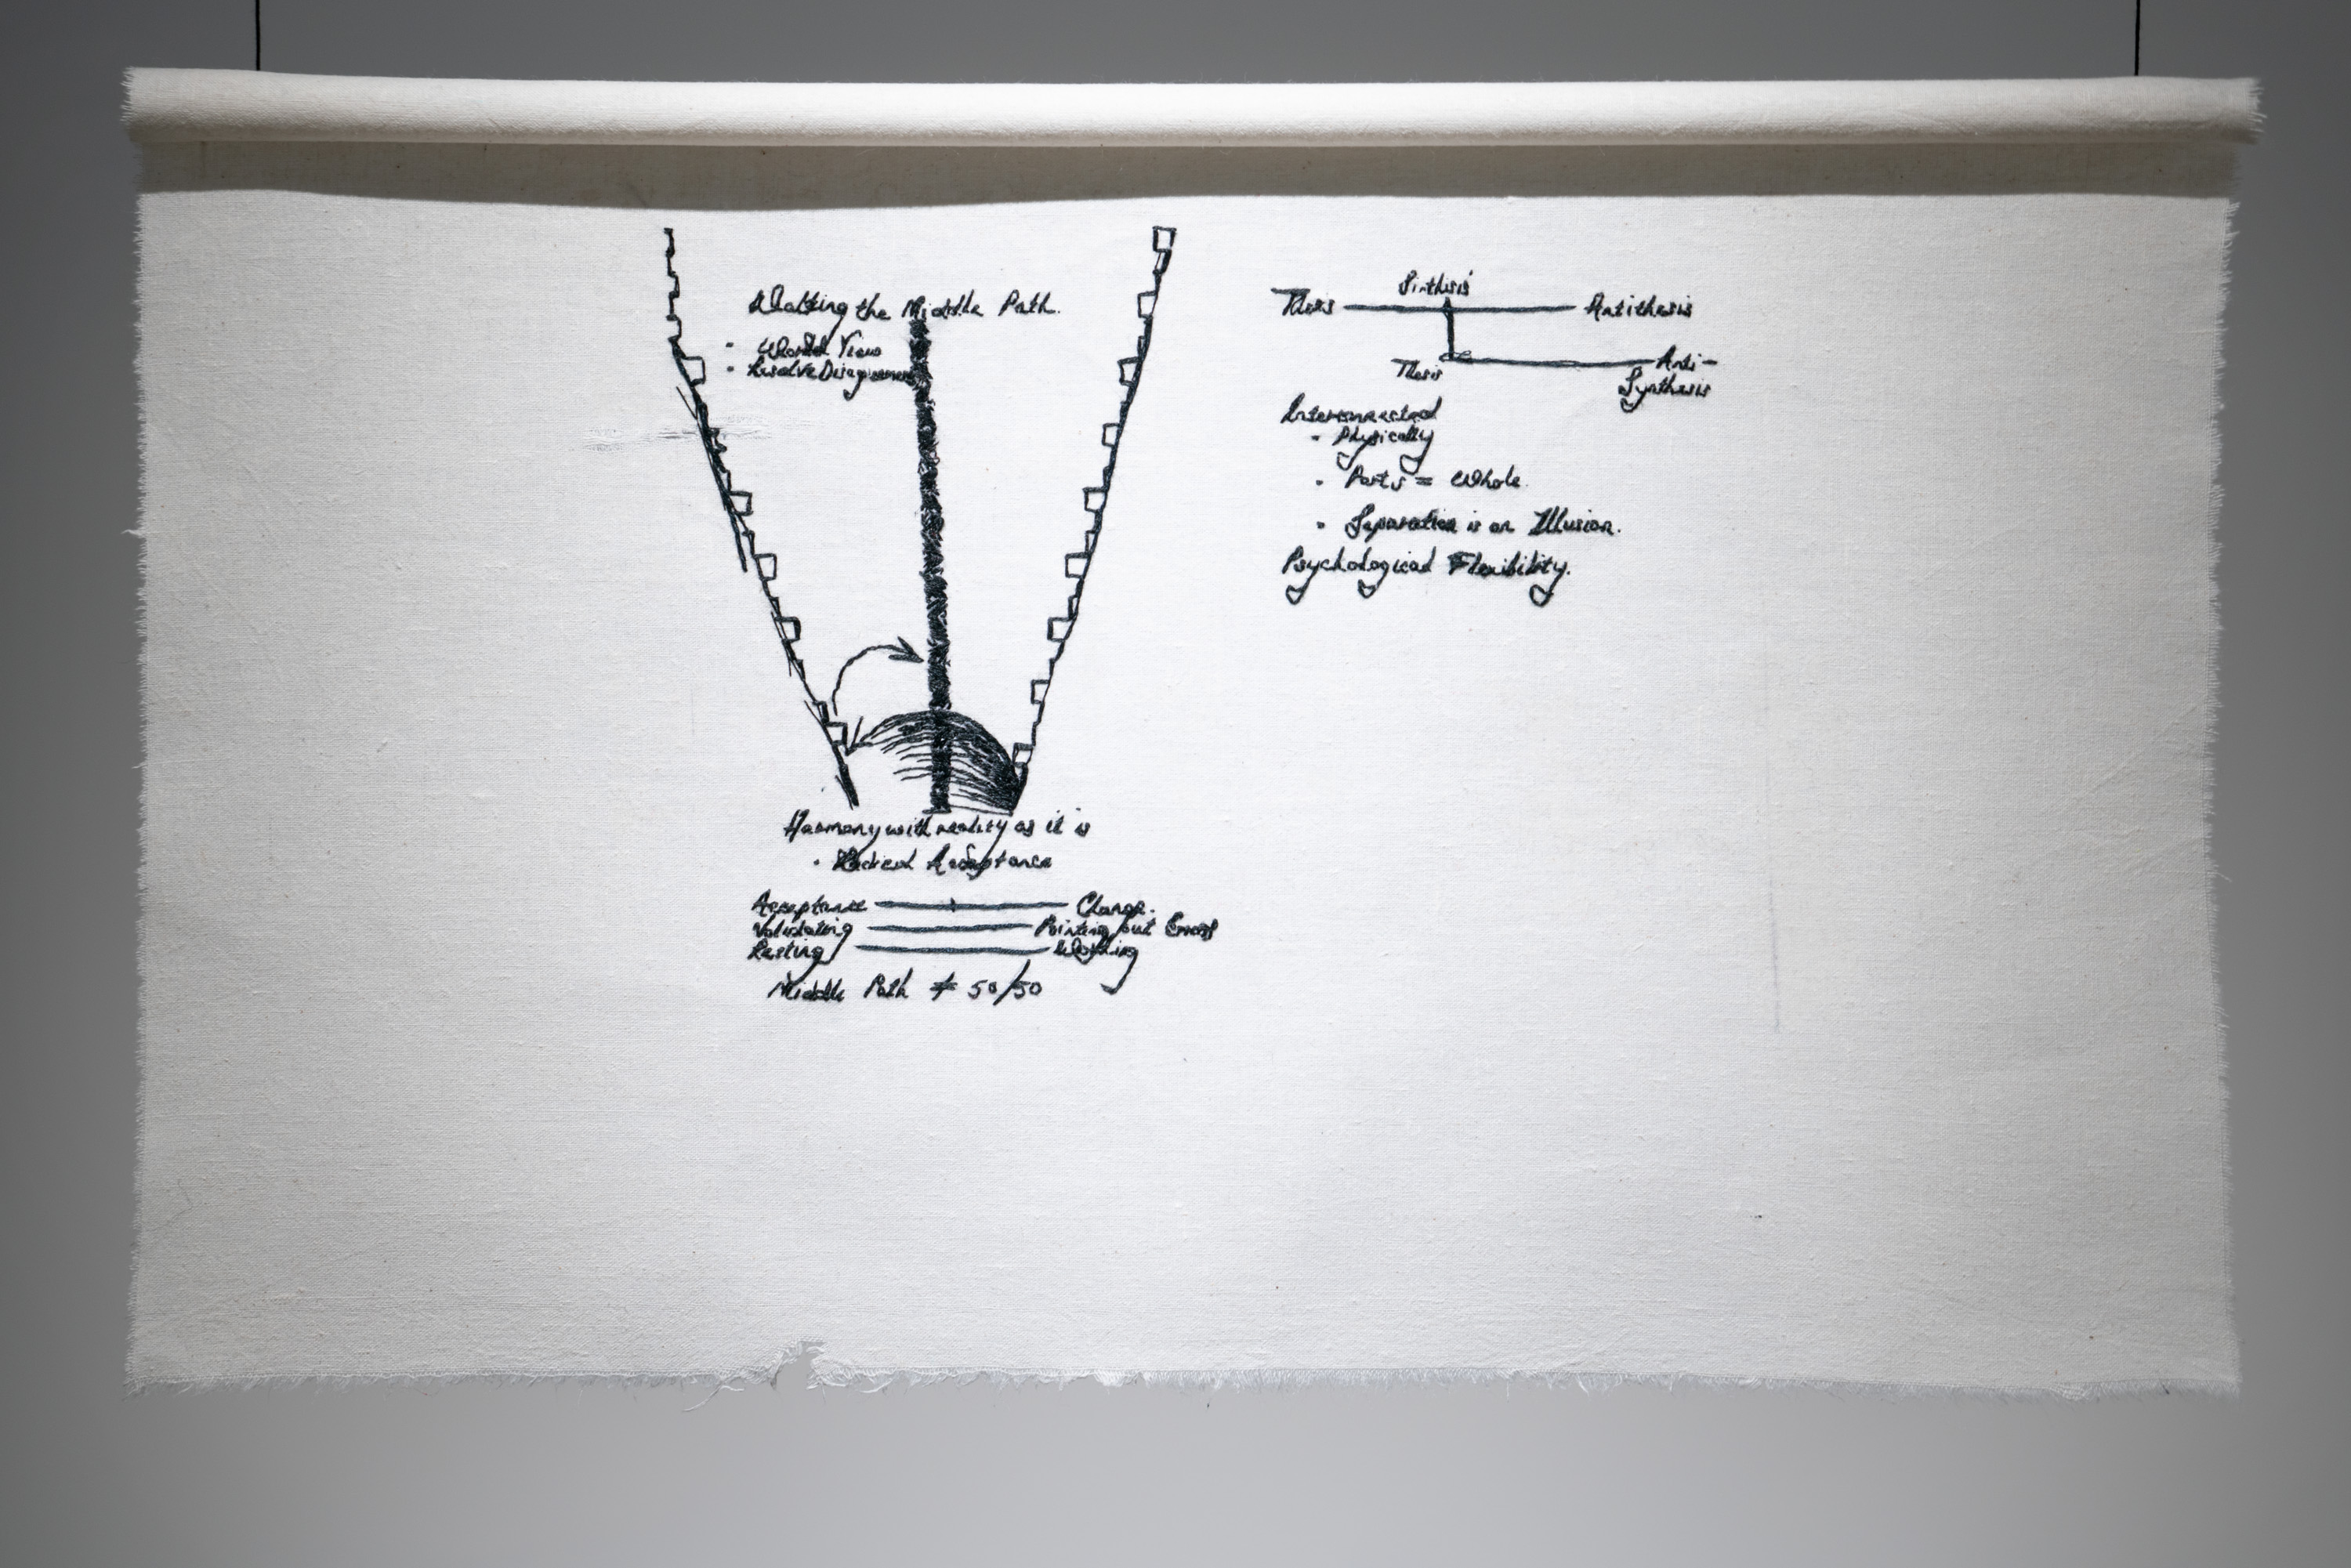 Walking the Middle Path.
• World View
• Resolve Disagreement
Harmony with reality as it is
• Radical Acceptance
Acceptance — Change.
Validating — Pointing out
Resting — Working
Middle Path ≠ 50/50
Sinthisis
Thesis — Antithesis
Thesis — Anti-
Synthesis
Interconnected
• Physically
• Parts = Whole.
• Separation is an Illusion.
Psychological Flexibility.